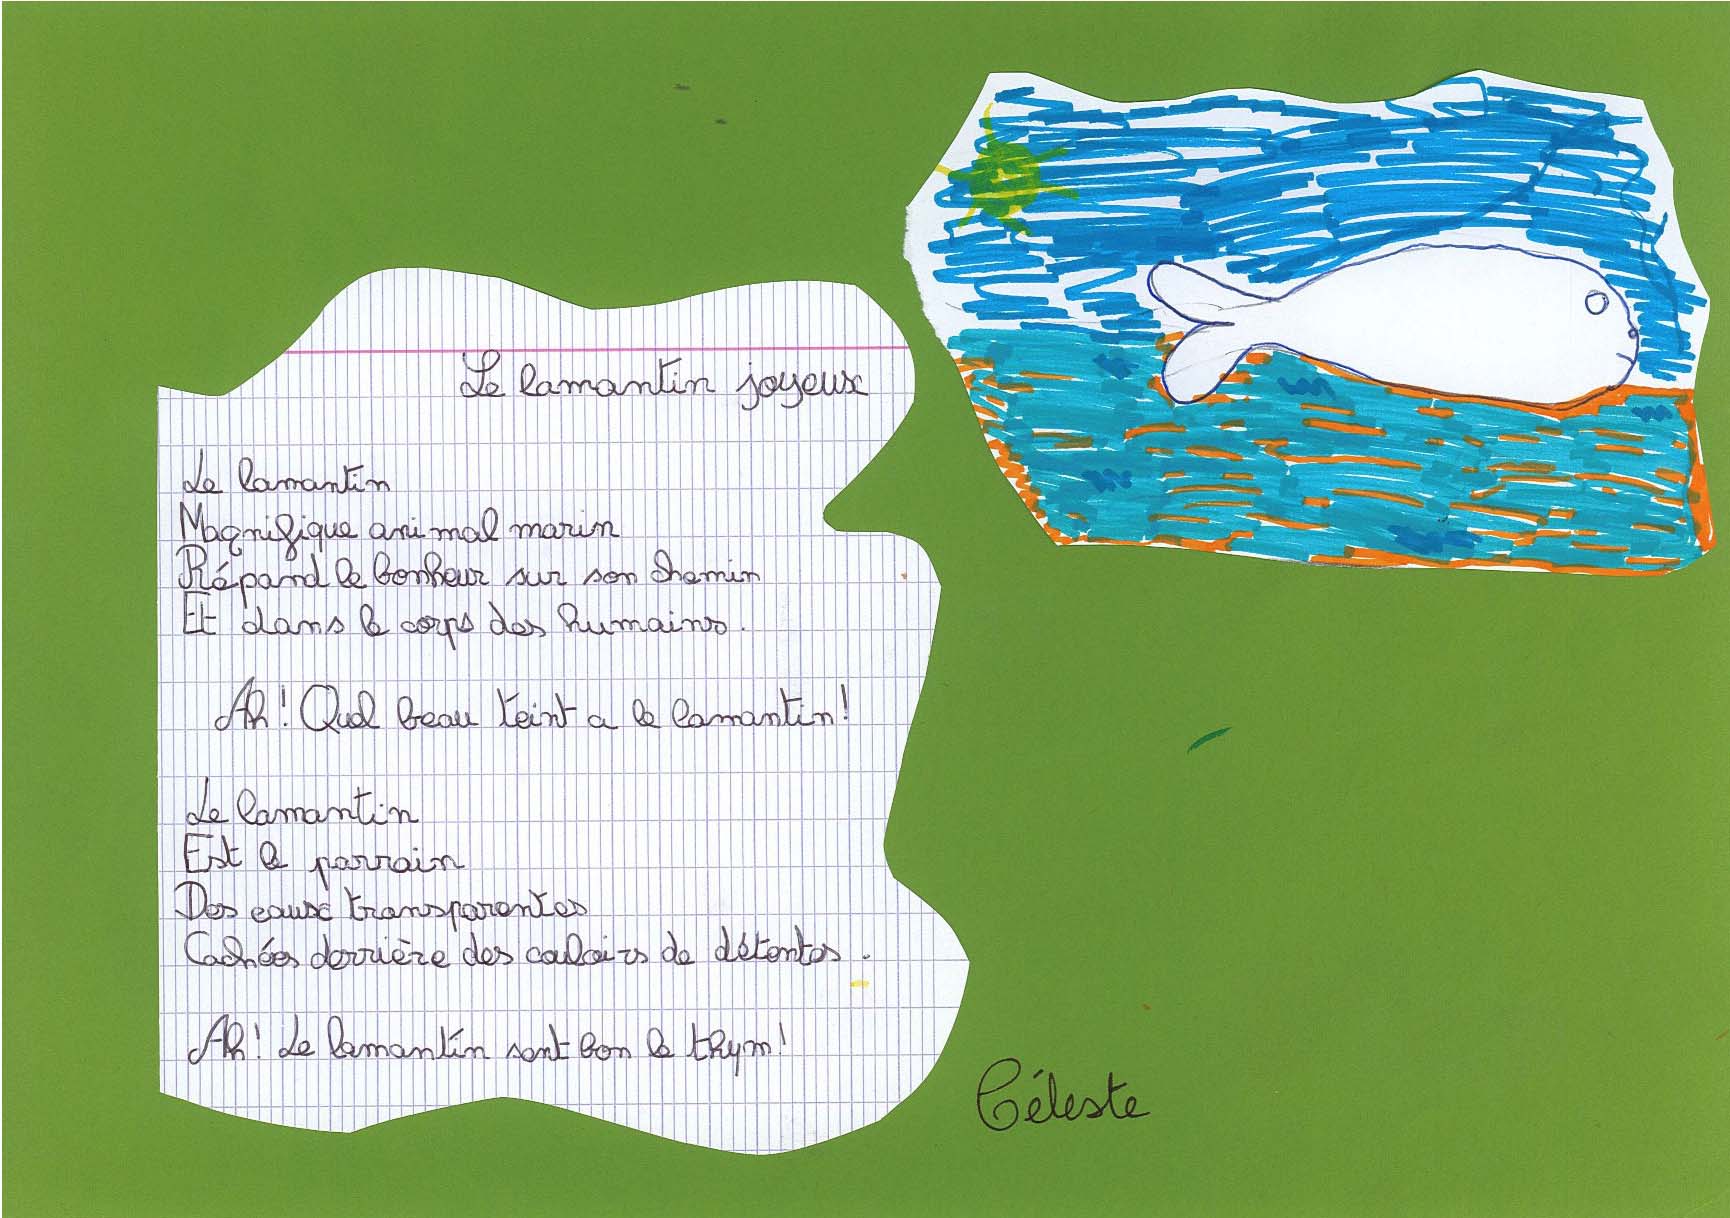 Le lamantin joyeux
Le lamantin
Magnifique animal marin
Répand le bonheur sur son chemin
Et dans le corps des humains.
Ah! Quel beau teint a le lamantin!
Le lamantin
Est le parrain
Des eaux transparentes
Cachées derrière des couloirs de détentes.
Ah! Le lamantin sent bon le thym!
Céleste